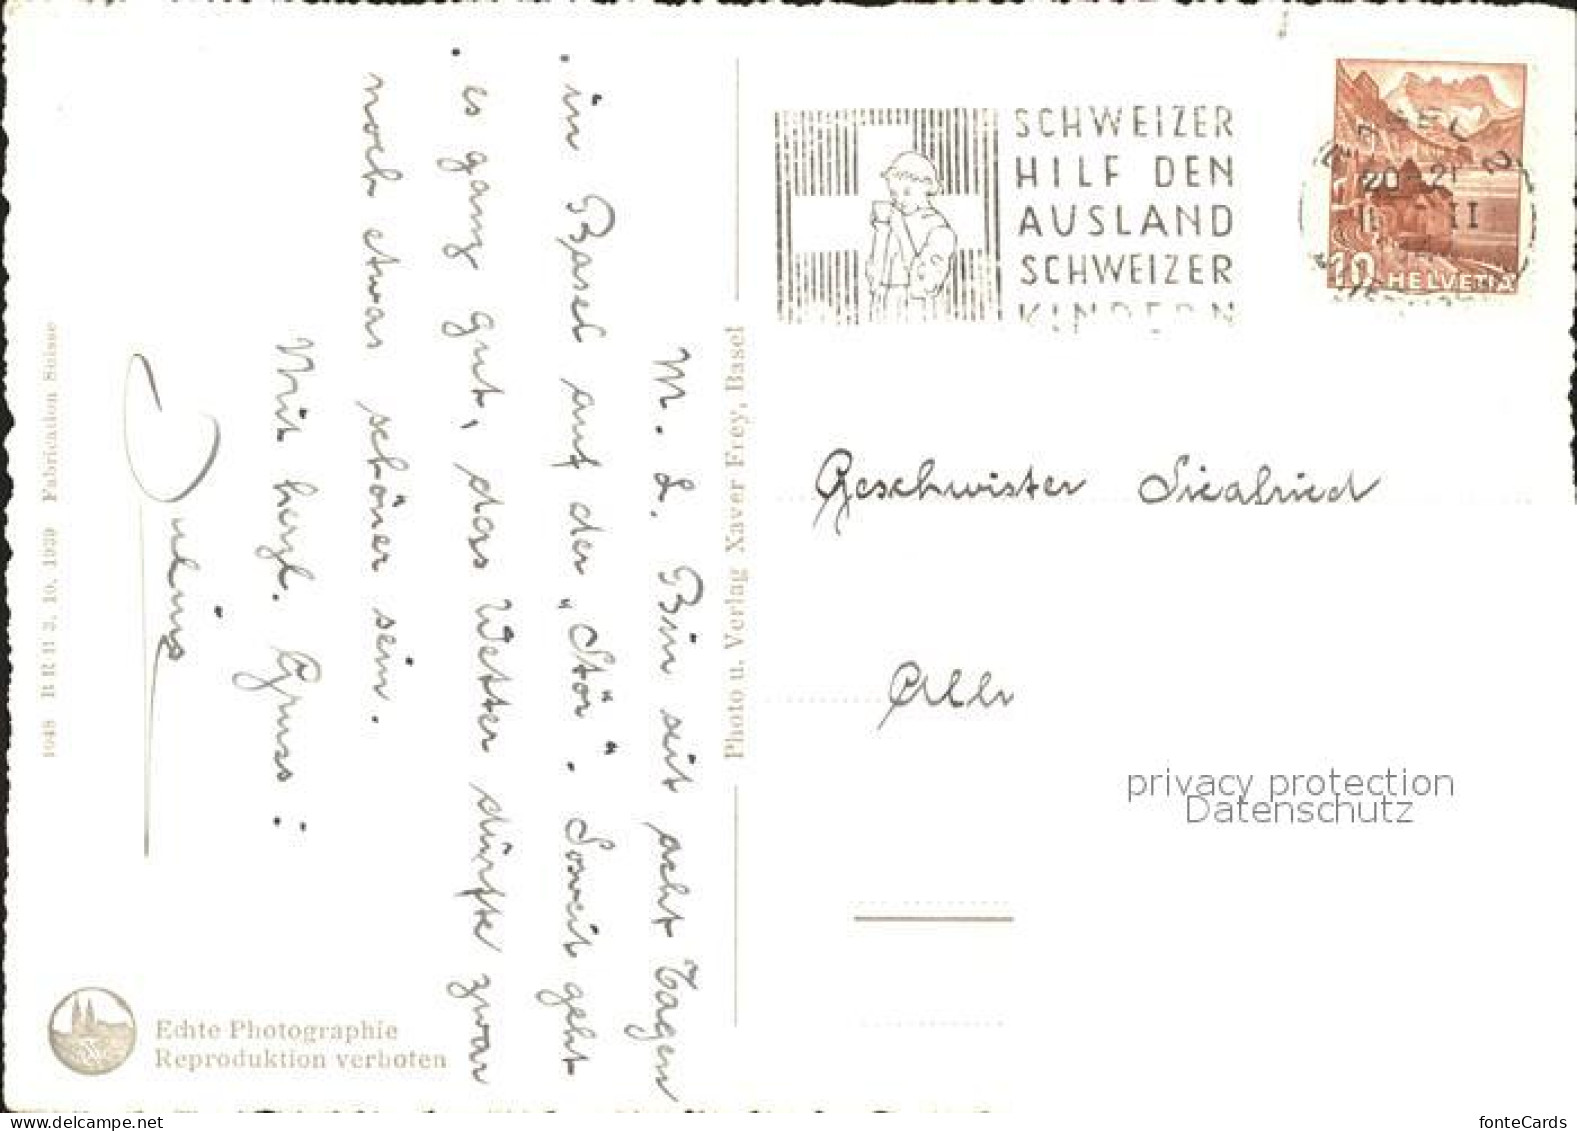 M. L. Bin seit acht Tagen
in Basel auf der „Stör". Soweit geht
es ganz gut, das Wetter dürfte zwar
noch etwas schöner sein.
Mit herzl. Gruss:
Julius
SCHWEIZER
HILF DEN
AUSLAND
SCHWEIZER
KINDERN
BASEL 2
20-21
II
10 HELVETIA
Geschwister Siegfried
privacy protection
Datenschutz
Photo u. Verlag Xaver Frey, Basel
1048 B R B 3. 10. 1939 Fabrication Suisse
Echte Photographie
Reproduktion verboten
delcampe.net
fonteCards